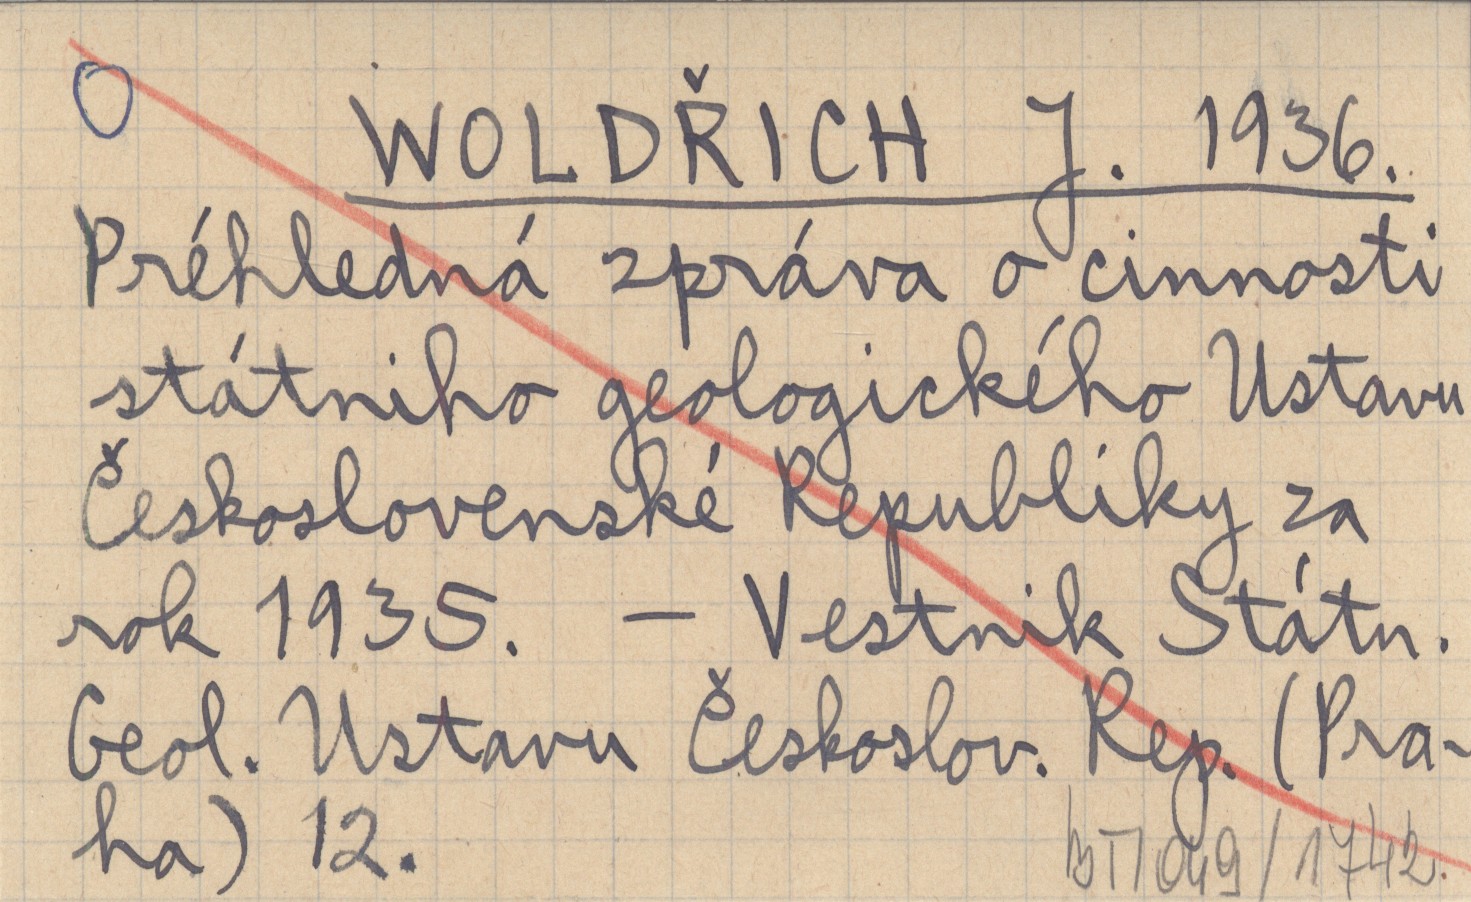 WOLDŘICH J. 1936.
Préhledná zpráva o cinnosti
státniho geologického Ustavu
Československé Republiky za
rok 1935. – Vestnik Státn.
Geol. Ustavu Českoslov. Rep. (Pra-
ha) 12.